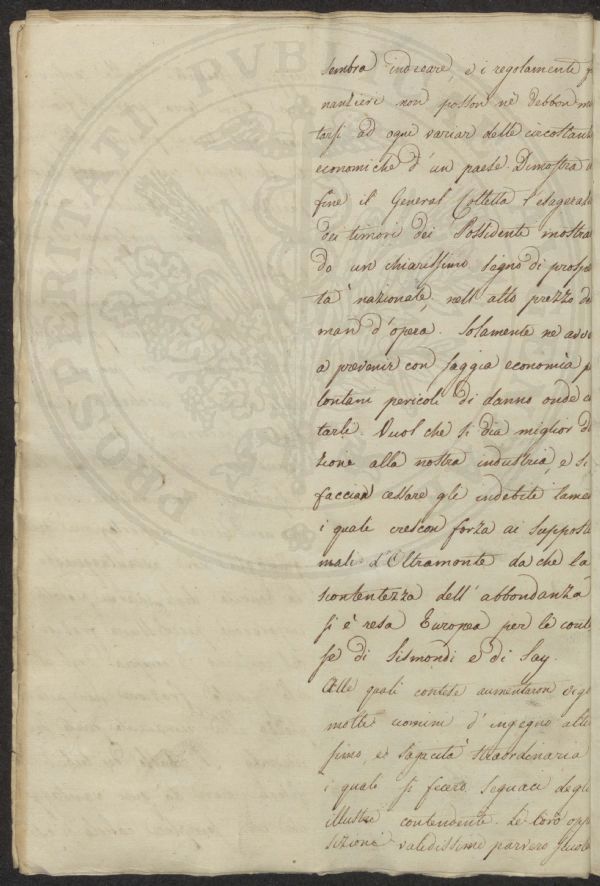 sembra indicare, e i regolamenti
nanzieri non posson nè debbon mu
tarsi ad ogni variar delle circostanze
economiche d'un paese. Dimostra in
fine il General Colletta l'esagerat
dei timori dei Possidenti mostra
do un chiarissimo segno di prospe
tà nazionale, nell'alto prezzo de
man d'opera. Solamente ne avve
a prevenir con saggia economia
lontani pericoli di danno onde
tarli. Vuol che si dia miglior di
zione alla nostra industria, e si
faccian cessare gli indebiti lamen
i quali crescon forza ai supposti
mali d'Oltramonte da che la
scontentezza dell'abbondanza
si è resa Europea per le conte
se di Sismondi e di Say.
Alle quali contese aumentaron vigo
molti uomini d'ingegno altis
simo, e sapacità straordinaria
i quali si fecero seguaci degli
illustri contendenti. Le loro oppo
sizioni validissime parvero
PROSPERITATI PVBLICAE